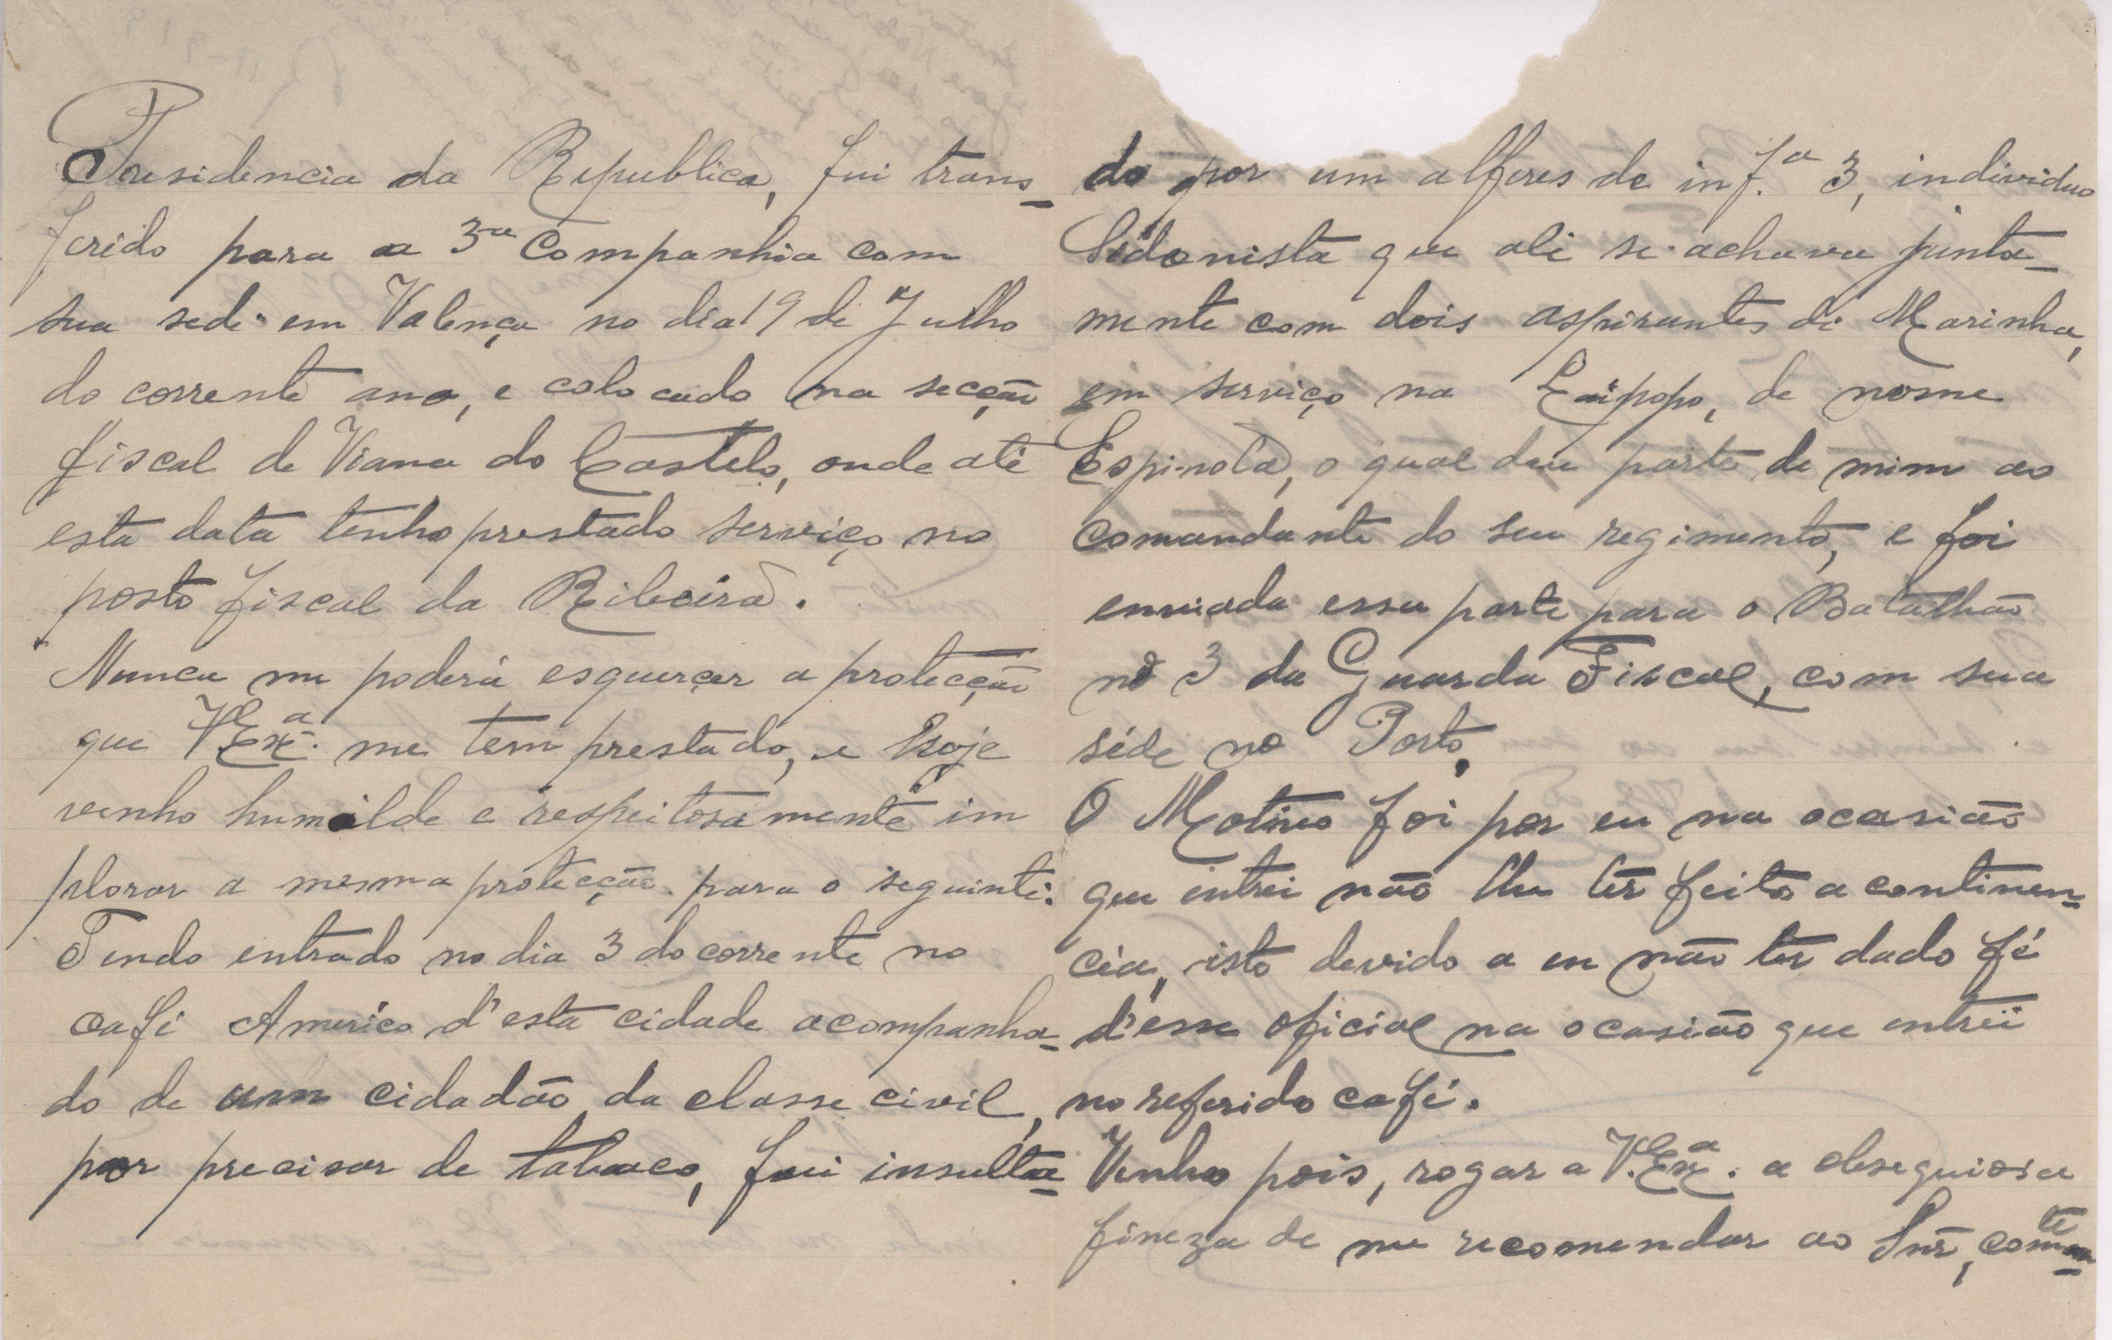 Presidencia da Republica, fui trans-
ferido para a 3ª Companhia com
sua sede em Valença no dia 19 de Julho
do corrente ano, e colocado na secção
fiscal de Viana do Castelo, onde até
esta data tenho prestado serviço no
posto fiscal da Ribeira.
Nunca me poderá esquerçer a protecção
que V. Exª. me tem prestado, e hoje
venho humilde e respeitosamente im
plorar a mesma protecção para o seguinte:
Tendo entrado no dia 3 do corrente no
café Americo d'esta cidade acompanha-
do de um cidadão da classe civil,
por precisar de tabaco, fui insulta-
do por um alferes de inf.ª 3, individuo
Sidonista que ali se achava junta-
mente com dois aspirantes de Marinha,
em serviço na de nome
Espinola, o qual deu parte de mim ao
comandante do seu regimento, e foi
enviada essa parte para o Batalhão
nº 3 da Guarda Fiscal, com sua
séde no Porto,
O Motivo foi por eu na ocasião
que entrei não lhe ter feito a continen-
cia, isto devido a eu não ter dado fé
d'esse oficial na ocasião que entrei
no referido café.
Venho pois, rogar a V. Exª. a obsequiosa
fineza de me recomendar ao Snr,